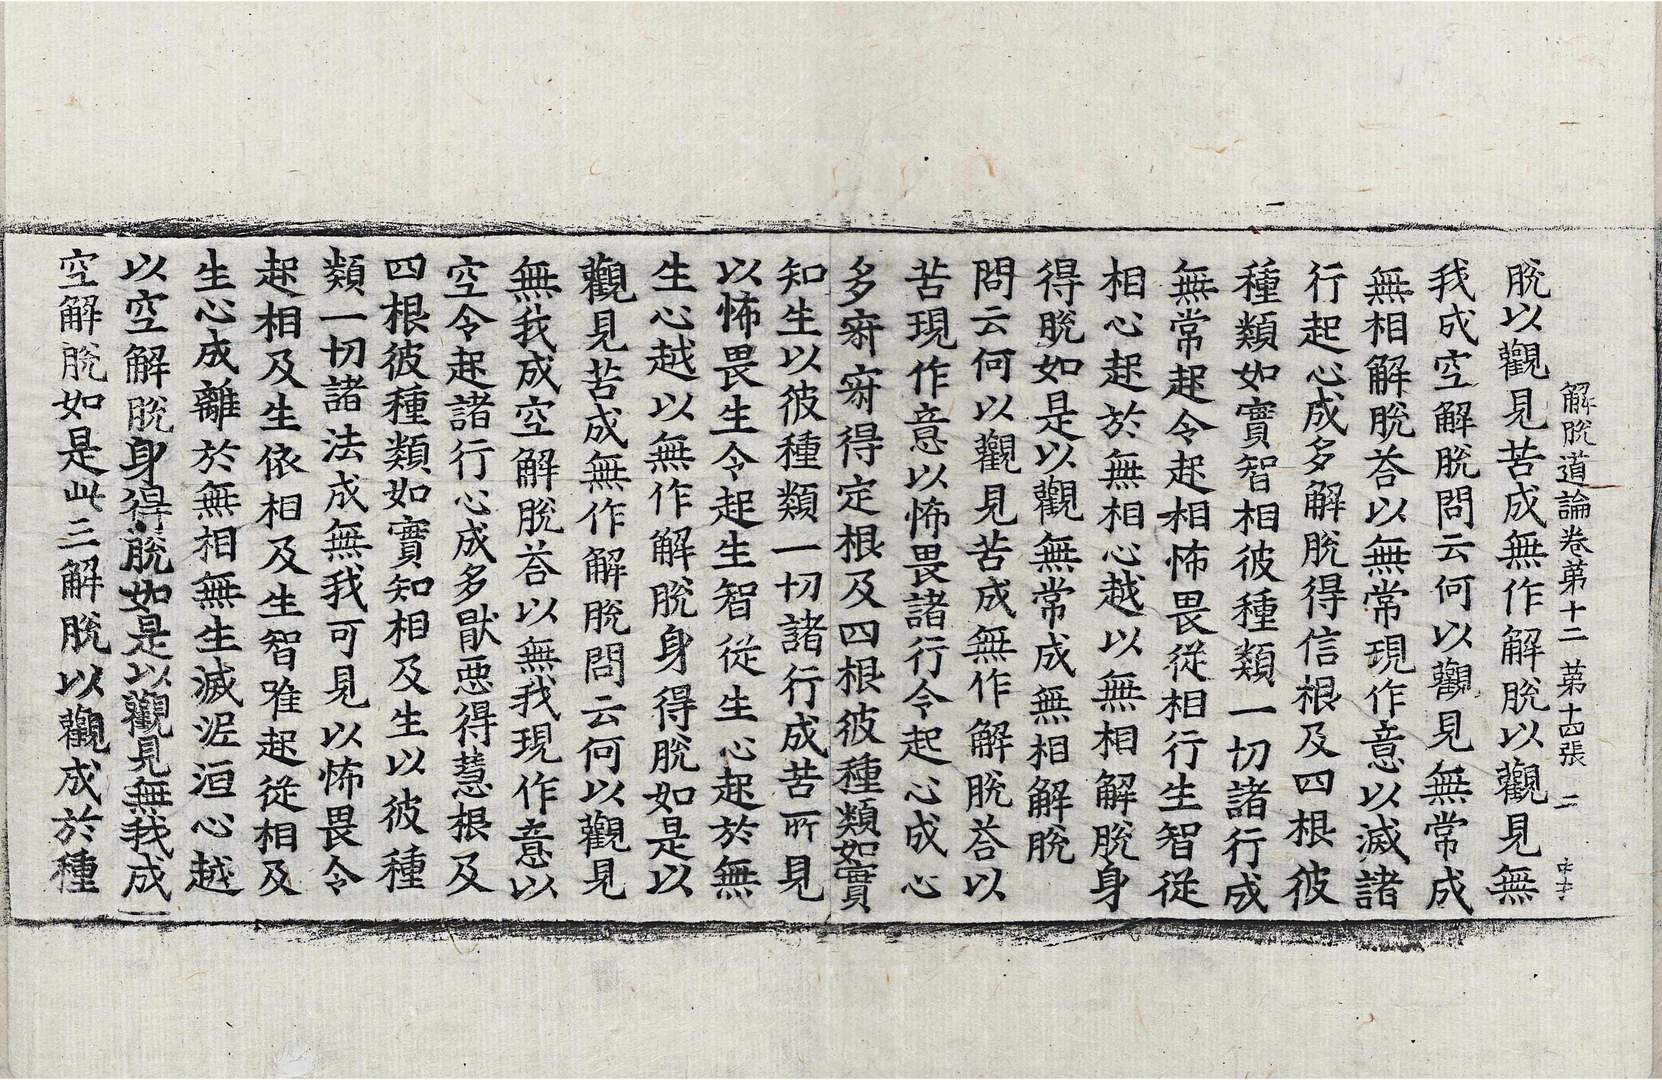 解脫道論卷第十二　第十四張　二
脫以觀見苦成無作解脫以觀見無
我成空解脫問云何以觀見無常成
無相解脫荅以無常現作意以滅諸
行起心成多解脫得信根及四根彼
種類如實智相彼種類一切諸行成
無常起令起相怖畏從相行生智從
相心起於無相心越以無相解脫身
得脫如是以觀無常成無相解脫
問云何以觀見苦成無作解脫荅以
苦現作意以怖畏諸行令起心成心
多㝛㝛得定根及四根彼種類如實
知生以彼種類一切諸行成苦所見
以怖畏生令起生智從生心起於無
生心越以無作解脫身得脫如是以
觀見苦成無作解脫問云何以觀見
無我成空解脫荅以無我現作意以
空令起諸行心成多猒惡得慧根及
四根彼種類如實知相及生以彼種
類一切諸法成無我可見以怖畏令
起相及生依相及生智唯起從相及
生心成離於無相無生滅泥洹心越
以空解脫身得脫如是以觀見無我成
空解脫如是此三解脫以觀成於種